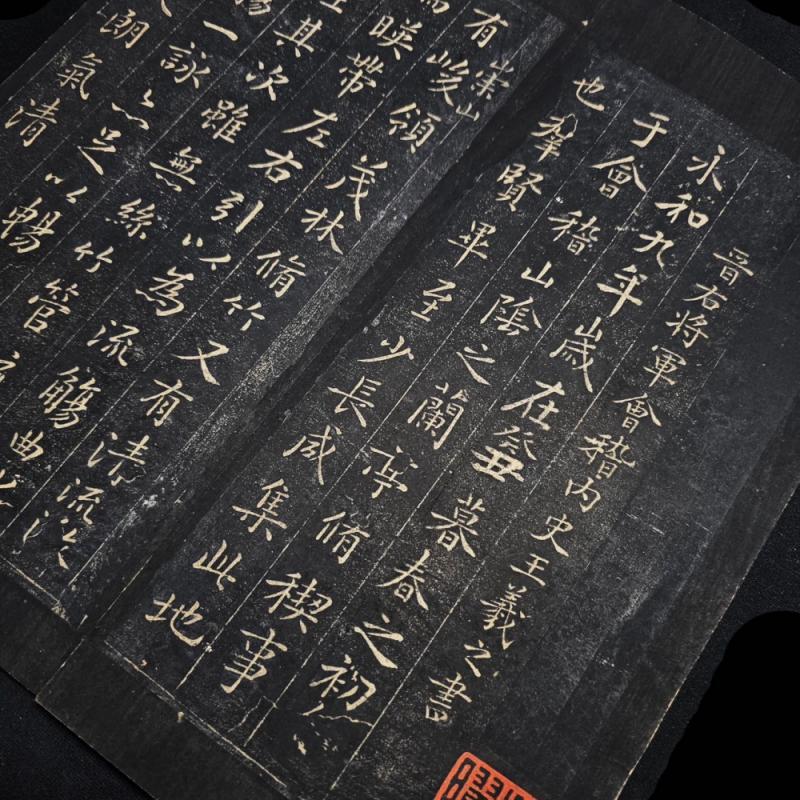 晉右將軍會稽内史王羲之書
永和九年歲在癸丑暮春之初会
于會稽山陰之蘭亭脩稧事
也羣賢畢至少長咸集此地
有崇山峻領茂林脩竹又有清流激
暎帶左右引以為流觴曲
其次雖無絲竹管
觴一詠亦足以暢
朗氣清